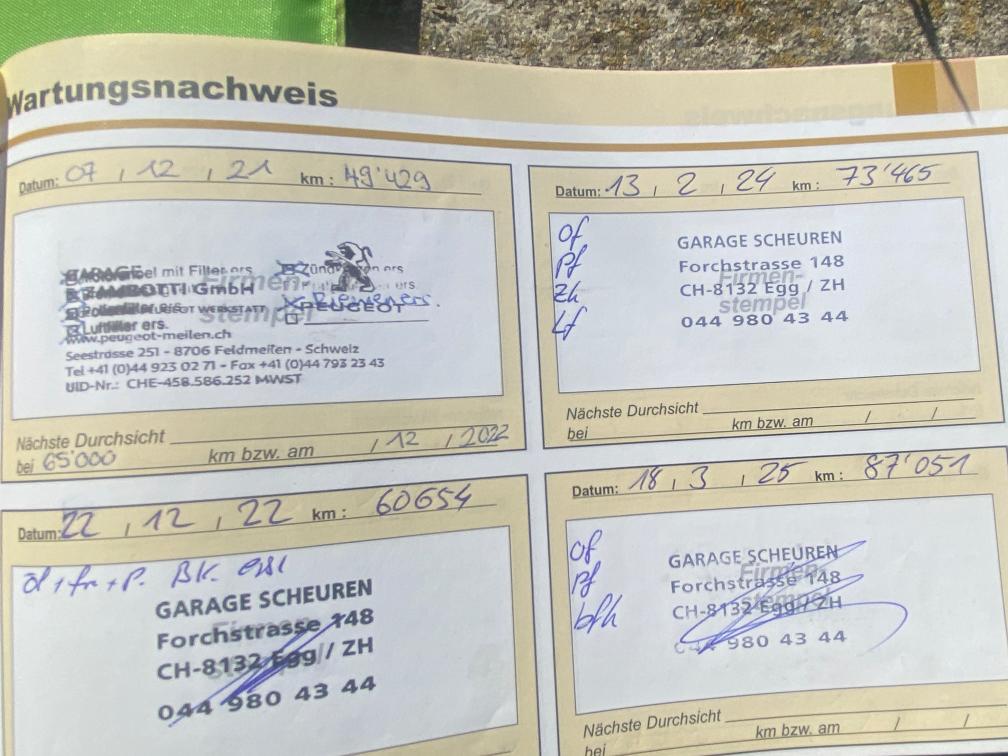 Wartungsnachweis
Datum: 07 / 12 / 21 km: 49'429
GARAGE
ZAMBOTTI GmbH
PEUGEOT WERKSTATT
Luftfilter ers.
PEUGEOT
www.peugeot-meilen.ch
Seestrasse 251 - 8706 Feldmeilen - Schweiz
Tel +41 (0)44 923 02 71 - Fax +41 (0)44 793 23 43
UID-Nr.: CHE-458.586.252 MWST
Firmen-
stempel
Nächste Durchsicht
bei 65'000 km bzw. am / 12 / 2022
Datum: 13 / 2 / 24 km: 73'465
of
Pf
Zk
Lf
GARAGE SCHEUREN
Forchstrasse 148
CH-8132 Egg / ZH
044 980 43 44
Firmen-
stempel
Nächste Durchsicht
bei km bzw. am / /
Datum: 22 / 12 / 22 km: 60654
GARAGE SCHEUREN
Forchstrasse 148
CH-8132 Egg / ZH
044 980 43 44
Datum: 18 / 3 / 25 km: 87'051
of
Pf
bfk
GARAGE SCHEUREN
Forchstrasse 148
CH-8132 Egg / ZH
044 980 43 44
Firmen-
stempel
Nächste Durchsicht
bei km bzw. am / /